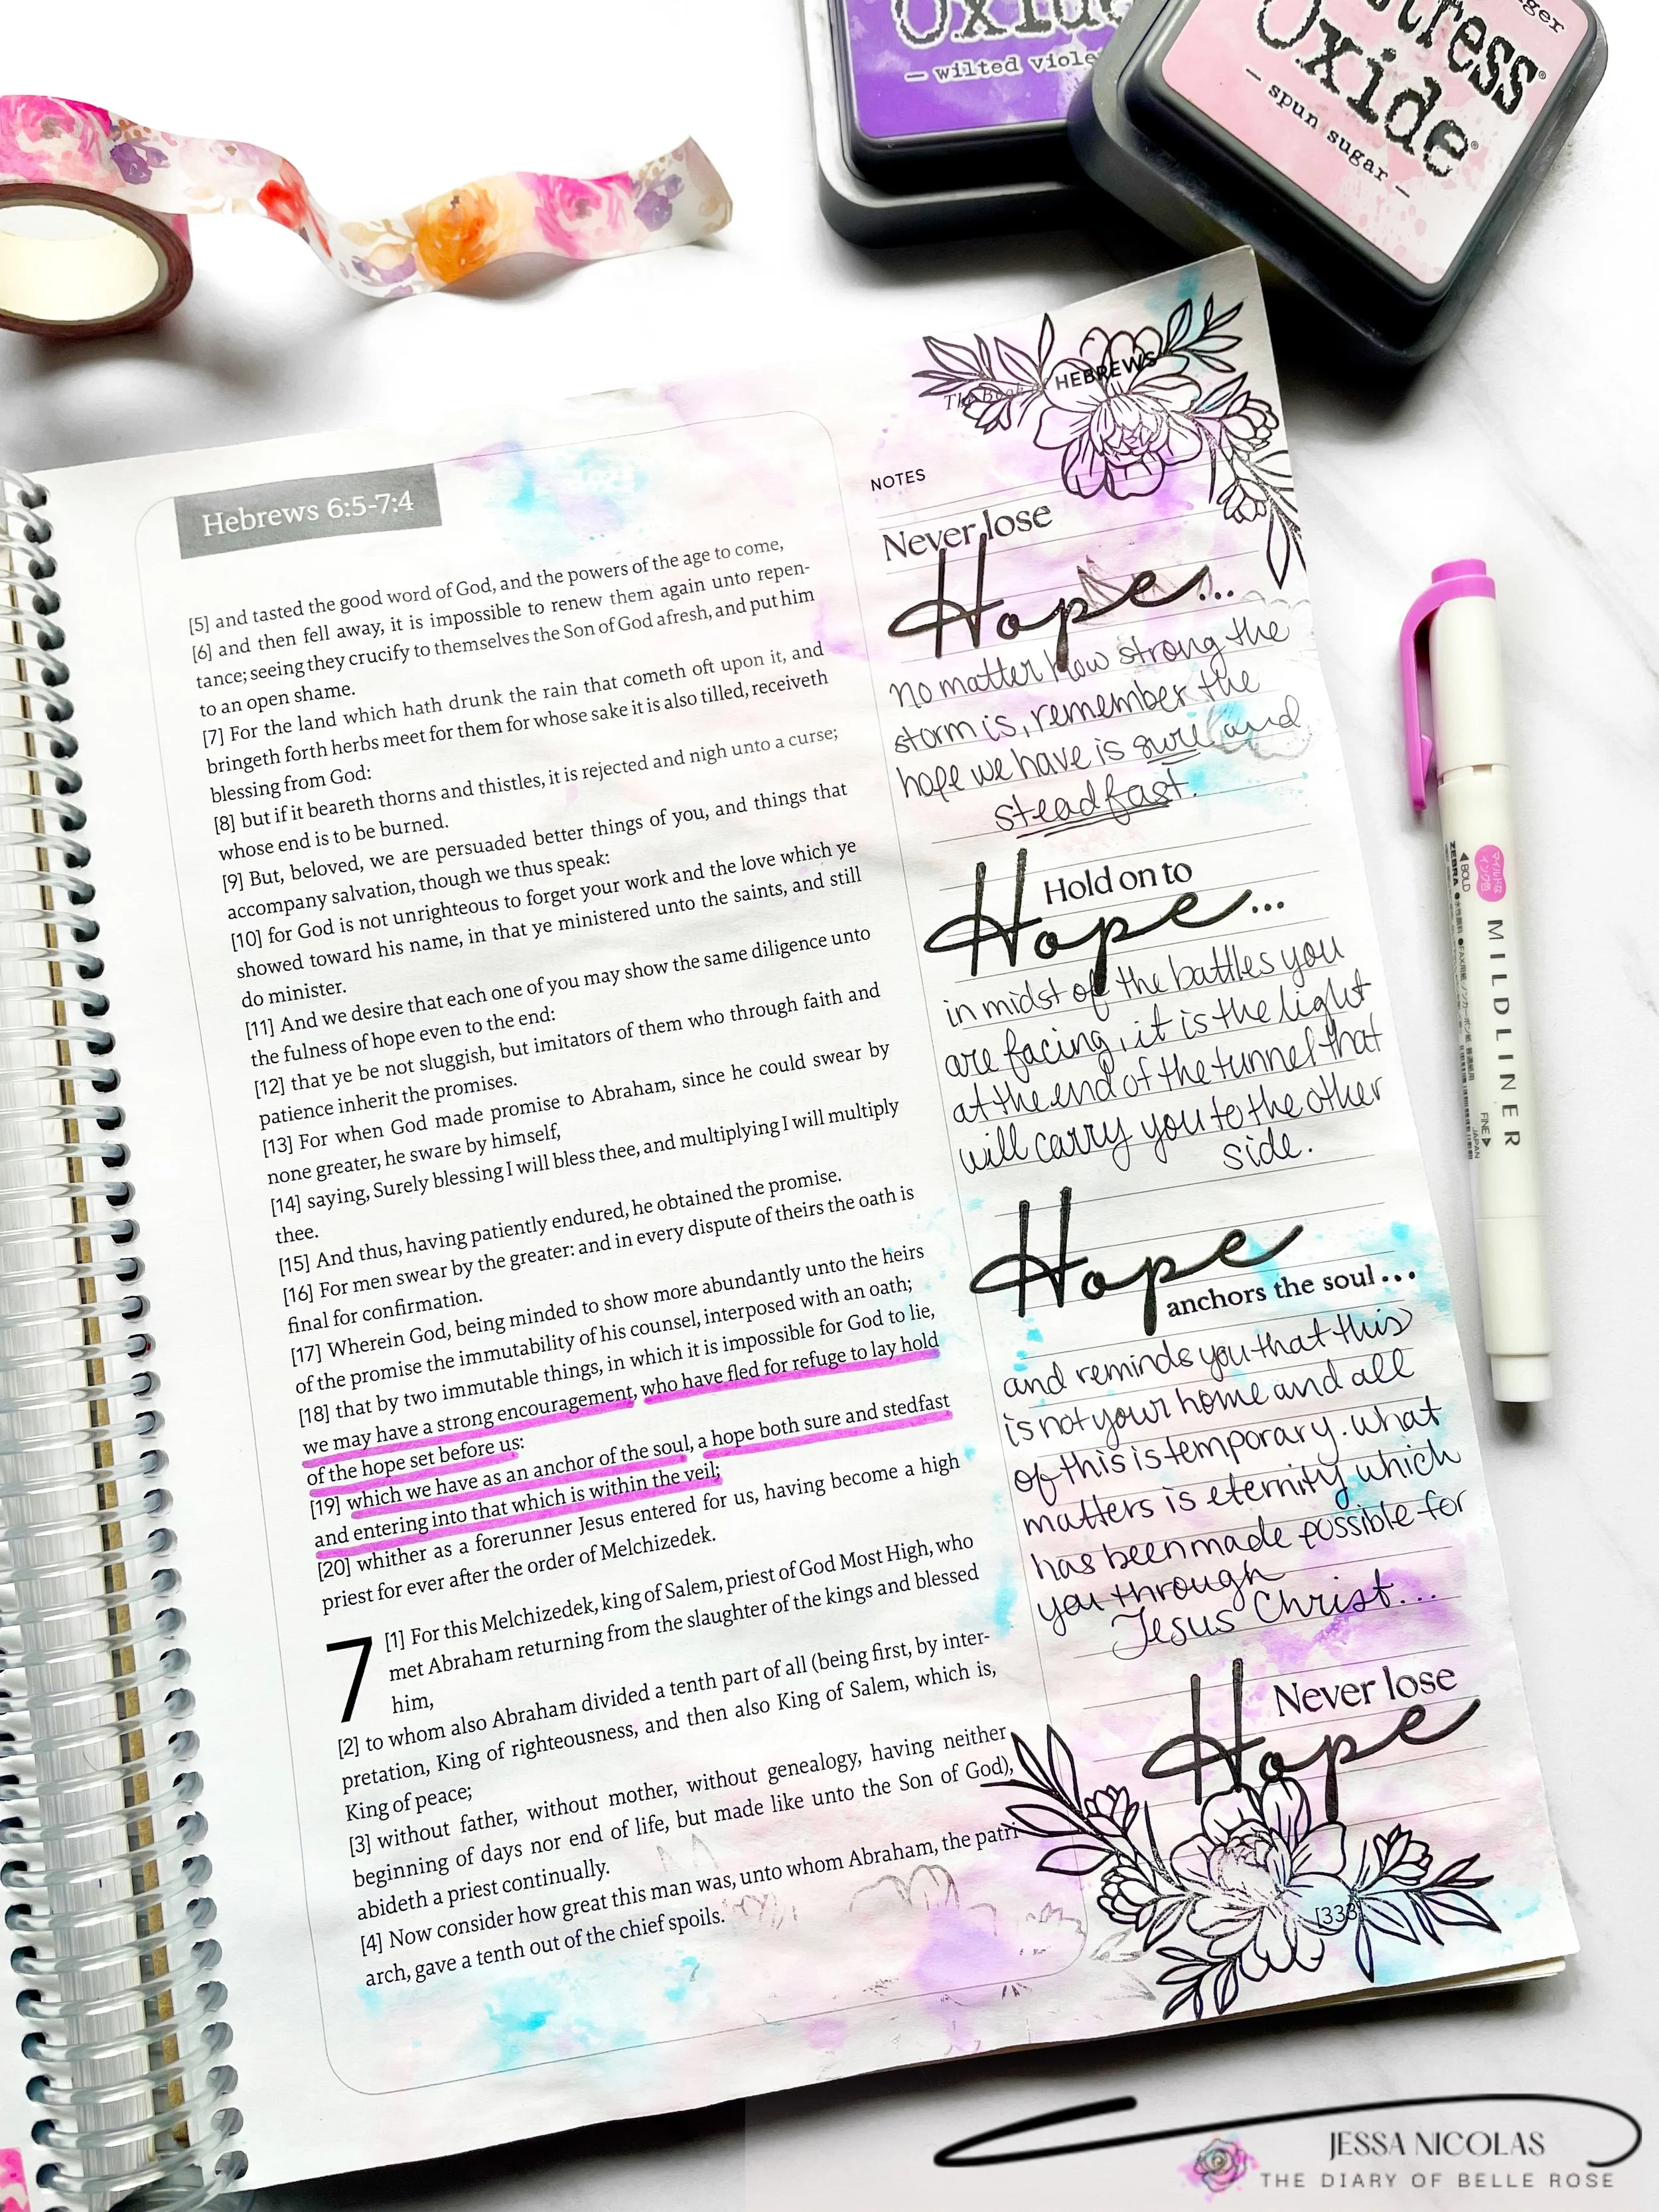 Oxide
— wilted viole
stress
Oxide®
— spun sugar —
The Book of HEBREWS
Hebrews 6:5-7:4
[5] and tasted the good word of God, and the powers of the age to come,
[6] and then fell away, it is impossible to renew them again unto repen-
tance; seeing they crucify to themselves the Son of God afresh, and put him
to an open shame.
[7] For the land which hath drunk the rain that cometh oft upon it, and
bringeth forth herbs meet for them for whose sake it is also tilled, receiveth
blessing from God:
[8] but if it beareth thorns and thistles, it is rejected and nigh unto a curse;
whose end is to be burned.
[9] But, beloved, we are persuaded better things of you, and things that
accompany salvation, though we thus speak:
[10] for God is not unrighteous to forget your work and the love which ye
showed toward his name, in that ye ministered unto the saints, and still
do minister.
[11] And we desire that each one of you may show the same diligence unto
the fulness of hope even to the end:
[12] that ye be not sluggish, but imitators of them who through faith and
patience inherit the promises.
[13] For when God made promise to Abraham, since he could swear by
none greater, he sware by himself,
[14] saying, Surely blessing I will bless thee, and multiplying I will multiply
thee.
[15] And thus, having patiently endured, he obtained the promise.
[16] For men swear by the greater: and in every dispute of theirs the oath is
final for confirmation.
[17] Wherein God, being minded to show more abundantly unto the heirs
of the promise the immutability of his counsel, interposed with an oath;
[18] that by two immutable things, in which it is impossible for God to lie,
we may have a strong encouragement, who have fled for refuge to lay hold
of the hope set before us:
[19] which we have as an anchor of the soul, a hope both sure and stedfast
and entering into that which is within the veil;
[20] whither as a forerunner Jesus entered for us, having become a high
priest for ever after the order of Melchizedek.
7 [1] For this Melchizedek, king of Salem, priest of God Most High, who
met Abraham returning from the slaughter of the kings and blessed
him,
[2] to whom also Abraham divided a tenth part of all (being first, by inter-
pretation, King of righteousness, and then also King of Salem, which is,
King of peace;
[3] without father, without mother, without genealogy, having neither
beginning of days nor end of life, but made like unto the Son of God),
abideth a priest continually.
[4] Now consider how great this man was, unto whom Abraham, the patri-
arch, gave a tenth out of the chief spoils.
NOTES
Never lose
Hope...
no matter how strong the
storm is, remember the
hope we have is sure and
steadfast.
Hold on to
Hope...
in midst of the battles you
are facing, it is the light
at the end of the tunnel that
will carry you to the other
side.
Hope
anchors the soul...
and reminds you that this
is not your home and all
of this is temporary. What
matters is eternity which
has been made possible for
you through
Jesus Christ...
Never lose
Hope
[333]
BOLD
ZEBRA
MILDLINER
FINE
JAPAN
JESSA NICOLAS
THE DIARY OF BELLE ROSE